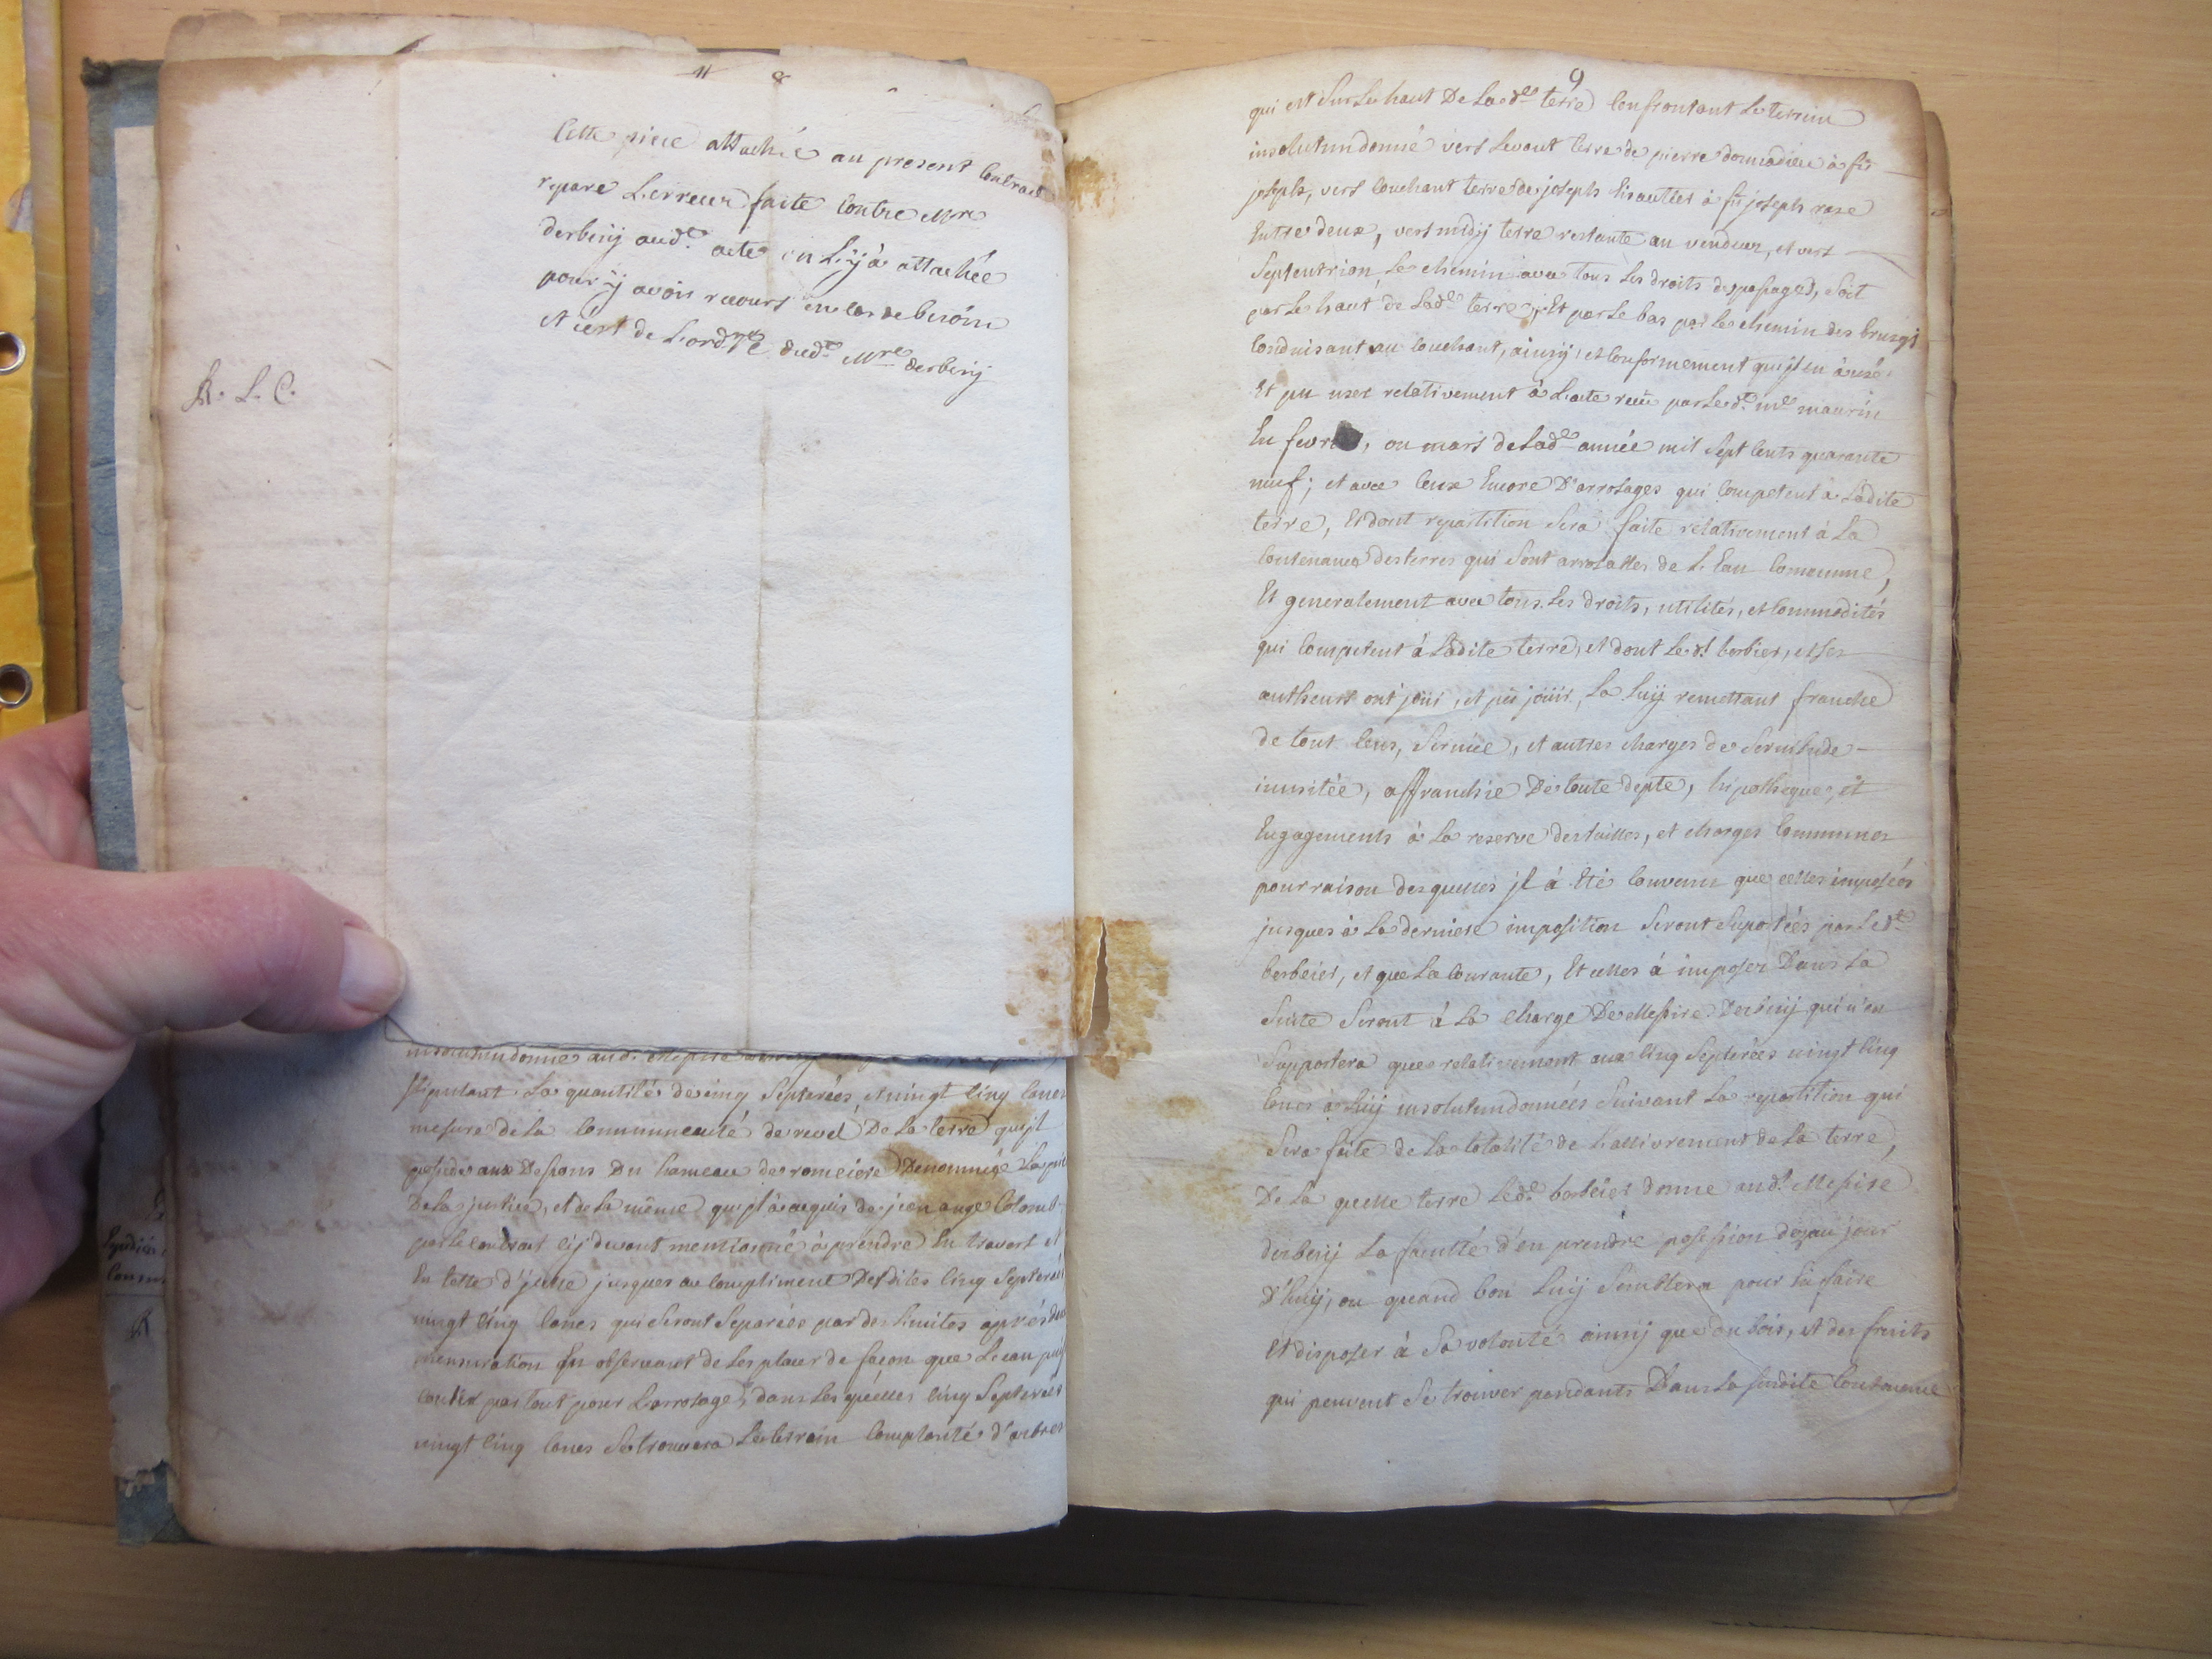 8
Cette piece attachée au present Contract
repare L'erreur faite Contre Mre
derbesij aud.t acte on L'y à attachée
pour ÿ avoir recours en cas de besoin
et c'est de L'ord.re dud.t Mre derbesij
R. L. C.
insolutundonne aud. Messire
stipulant La quantité de cinq Septerées, et vingt Cinq Canes
mesure de La Communeauté de revel De La terre qu'jl
possede aux Despens Du hameau de romeiere Denommée La
De La justice, et de La même qu'jl à acquis de jean ange Colomb
par Le contract cÿ devant mentionné à prendre En travers et
En telle d'jcelle jusques au Compliment Desdites Cinq Septerées
vingt Cinq Canes qui seront Separées par des Limites aprés
mensuration En observant de Les placer de façon que L'eau puisse
Couler par tout pour L'arrosage, dans Les quelles Cinq Septerées
vingt Cinq Canes Se trouvera Le terrain Complanté d'arbres
9
qui est Sur Le haut De Lad.e terre Confrontant Le terrein
insolutundonné vers Levant terre de pierre donnadieu à fû
joseph, vers Couchant terre de joseph Lisautier à fû joseph rase
Entre deux, vers midÿ terre restante au vendeur, et vers
Septentrion Le chemin avec tous Les droits de passages, Soit
par Le haut de Lad.e terre, Et par Le bas par Le chemin des
Conduisant au Couchant, ainsÿ, et Conformement qu'jl en à usé
Et pu user relativement à L'acte reçu par Led.t m.e maurin
En fevrier, ou mars de Lad.e année mil Sept Cents quarante
neuf; et avec Ceux Encore D'arrosages qui Competent à Ladite
terre, Et dont repartition Sera faite relativement à La
Contenance des terres qui Sont arrosables de L'Eau Commune,
Et generalement avec tous Les droits, utilités, et Commodités
qui Competent à Ladite terre, et dont Le d.t berbeier, et Ses
autheurs ont joüi, et pû joüir, La Luÿ remettant franche
de tout Cens, Service, et autres charges de Servitude
inusitée, affranchie De toute depte, hipotheque, et
Engagements à La reserve des tailles, et charges Communes
pour raison desquelles jl à Eté Convenu que celles imposées
jusques à La derniere imposition Seront Suportées par Led.t
berbeier, et que La Courante, Et celles à imposer Dans La
Suite Seront à La charge De Messire Derbesij qui n'en
Supportera que relativement aux Cinq Septerées vingt Cinq
Canes à Luÿ insolutundonnées Suivant La repartition qui
Sera faite de La totalité de L'allivrement de La terre,
De La quelle terre Led.t berbeier donne aud.t Messire
derbesij La faculté d'en prendre possession dez au jour
D'huÿ, ou quand bon Luÿ Semblera pour En faire
Et disposer à Sa volonté ainsÿ que du bois, et des fruits
qui peuvent Se trouver pendants Dans La Susdite Contenance